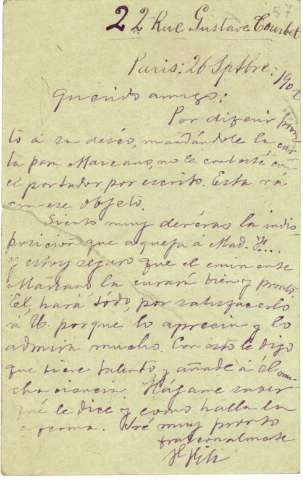 22 Rue Gustave Courbet
57
Paris: 26 Spbre: 190
Querido amigo:
Por
tó á su deseo, mandándole la
para Mareano, no le contesté en
el portador por escrito. Esta vá
con ese objeto.
Siento muy deveras la indis
posicion que aqueja á Mad.
y estoy seguro que el eminente
Mareano la curará bien y pronto
El hará todo por satisfacerlo
á U. porque lo aprecia y lo
admira mucho. Con esto le digo
que tiene talento y añade á él mu
cha ciencia. Hágame saber
qué le dice y como halla la
enferma. Iré muy pronto
fraternalmente